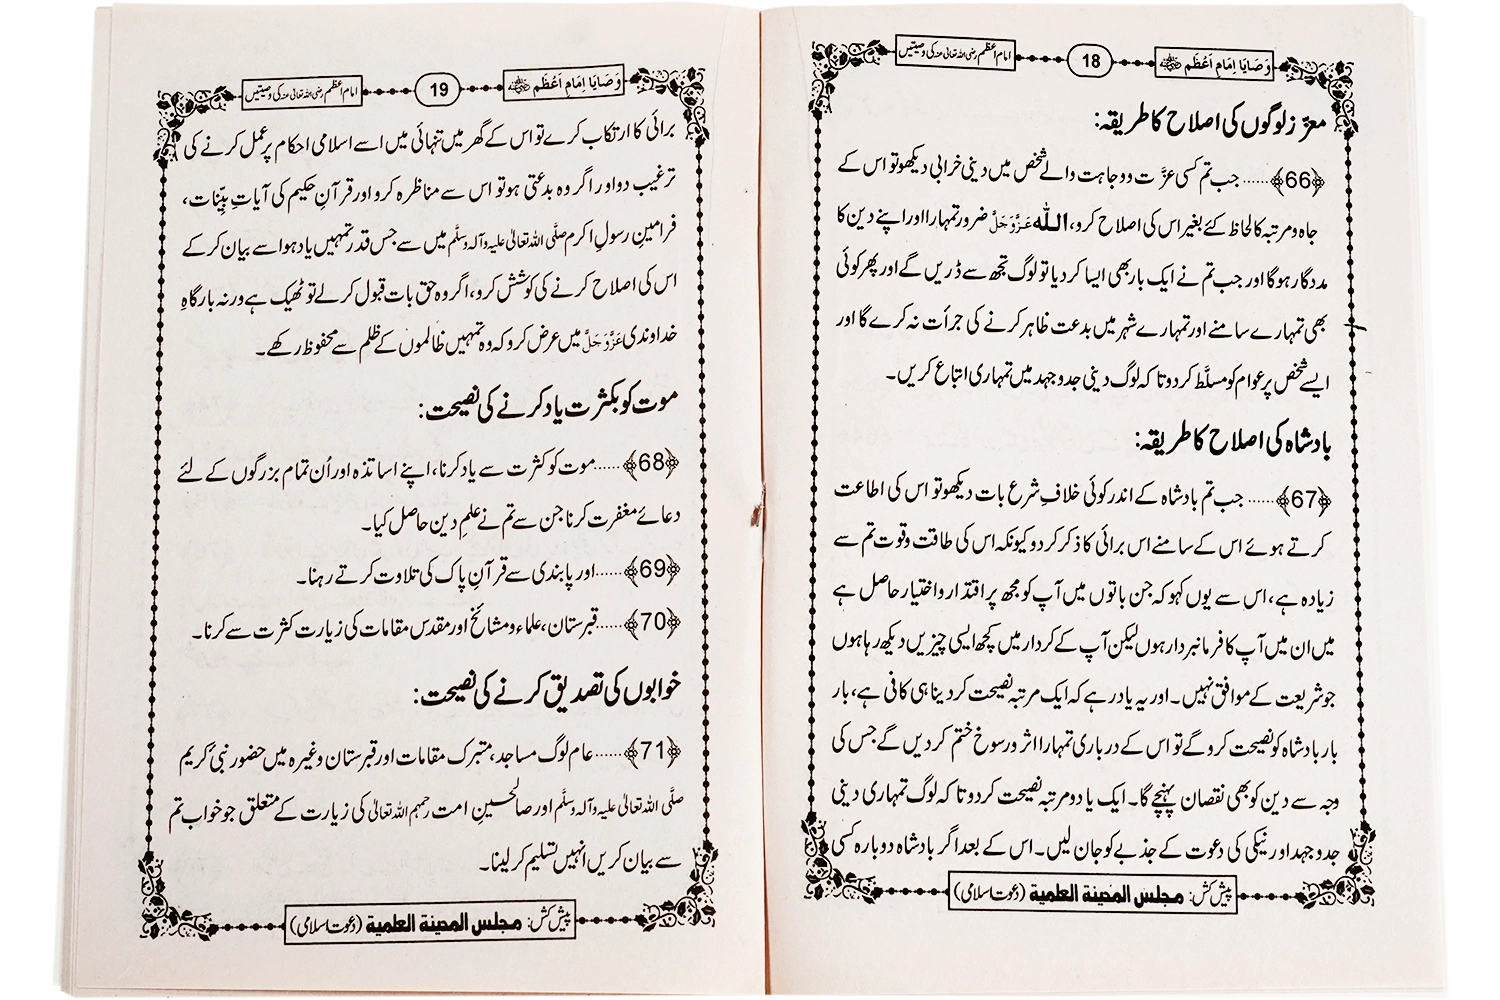 وَصَایَا اِمَامِ اَعْظَم
18
امام اعظم رضی اللہ تعالیٰ عنہ کی وصیتیں
معزز لوگوں کی اصلاح کا طریقہ:
﴿66﴾...... جب تم کسی عزّت ووجاہت والے شخص میں دینی خرابی دیکھو تو اس کے
جاہ ومرتبہ کا لحاظ کئے بغیر اس کی اصلاح کرو، اللہ عَزَّوَجَلَّ ضرور تمہارا اور اپنے دین کا
مددگار ہوگا اور جب تم نے ایک بار بھی ایسا کر دیا تو لوگ تجھ سے ڈریں گے اور پھر کوئی
بھی تمہارے سامنے اور تمہارے شہر میں بدعت ظاہر کرنے کی جرأت نہ کرے گا اور
ایسے شخص پر عوام کو مسلَّط کر دو تا کہ لوگ دینی جدوجہد میں تمہاری اتباع کریں۔
بادشاہ کی اصلاح کا طریقہ:
﴿67﴾...... جب تم بادشاہ کے اندر کوئی خلافِ شرع بات دیکھو تو اس کی اطاعت
کرتے ہوئے اس کے سامنے اس برائی کا ذکر کردو کیونکہ اس کی طاقت وقوت تم سے
زیادہ ہے، اس سے یوں کہو کہ جن باتوں میں آپ کو مجھ پر اقتدار واختیار حاصل ہے
میں ان میں آپ کا فرمانبردار ہوں لیکن آپ کے کردار میں کچھ ایسی چیزیں دیکھ رہا ہوں
جو شریعت کے موافق نہیں۔ اور یہ یاد رہے کہ ایک مرتبہ نصیحت کر دینا ہی کافی ہے، بار
بار بادشاہ کو نصیحت کرو گے تو اس کے درباری تمہارا اثر ورسوخ ختم کر دیں گے جس کی
وجہ سے دین کو بھی نقصان پہنچے گا۔ ایک یا دو مرتبہ نصیحت کر دو تا کہ لوگ تمہاری دینی
جدوجہد اور نیکی کی دعوت کے جذبے کو جان لیں۔ اس کے بعد اگر بادشاہ دوبارہ کسی
پیش کش: مجلس المدینۃ العلمیۃ (دعوت اسلامی)
وَصَایَا اِمَامِ اَعْظَم
19
امام اعظم رضی اللہ تعالیٰ عنہ کی وصیتیں
برائی کا ارتکاب کرے تو اس کے گھر میں تنہائی میں اسے اسلامی احکام پر عمل کرنے کی
ترغیب دو اور اگر وہ بدعتی ہو تو اس سے مناظرہ کرو اور قرآنِ حکیم کی آیاتِ بیّنات،
فرامینِ رسولِ اکرم صلَّی اللہ تعالیٰ علیہ واٰلہ وسلَّم میں سے جس قدر تمہیں یاد ہو اسے بیان کر کے
اس کی اصلاح کرنے کی کوشش کرو، اگر وہ حق بات قبول کر لے تو ٹھیک ہے ورنہ بارگاہِ
خداوندی عَزَّوَجَلَّ میں عرض کرو کہ وہ تمہیں ظالموں کے ظلم سے محفوظ رکھے۔
موت کو بکثرت یاد کرنے کی نصیحت:
﴿68﴾...... موت کو کثرت سے یاد کرنا، اپنے اساتذہ اور اُن تمام بزرگوں کے لئے
دعائے مغفرت کرنا جن سے تم نے علمِ دین حاصل کیا۔
﴿69﴾...... اور پابندی سے قرآنِ پاک کی تلاوت کرتے رہنا۔
﴿70﴾...... قبرستان، علماء ومشائخ اور مقدس مقامات کی زیارت کثرت سے کرنا۔
خوابوں کی تصدیق کرنے کی نصیحت:
﴿71﴾...... عام لوگ مساجد، متبرک مقامات اور قبرستان وغیرہ میں حضور نبیٔ کریم
صلَّی اللہ تعالیٰ علیہ واٰلہ وسلَّم اور صالحینِ امت رحمہم اللہ تعالیٰ کی زیارت کے متعلق جو خواب تم
سے بیان کریں انہیں تسلیم کر لینا۔
پیش کش: مجلس المدینۃ العلمیۃ (دعوت اسلامی)